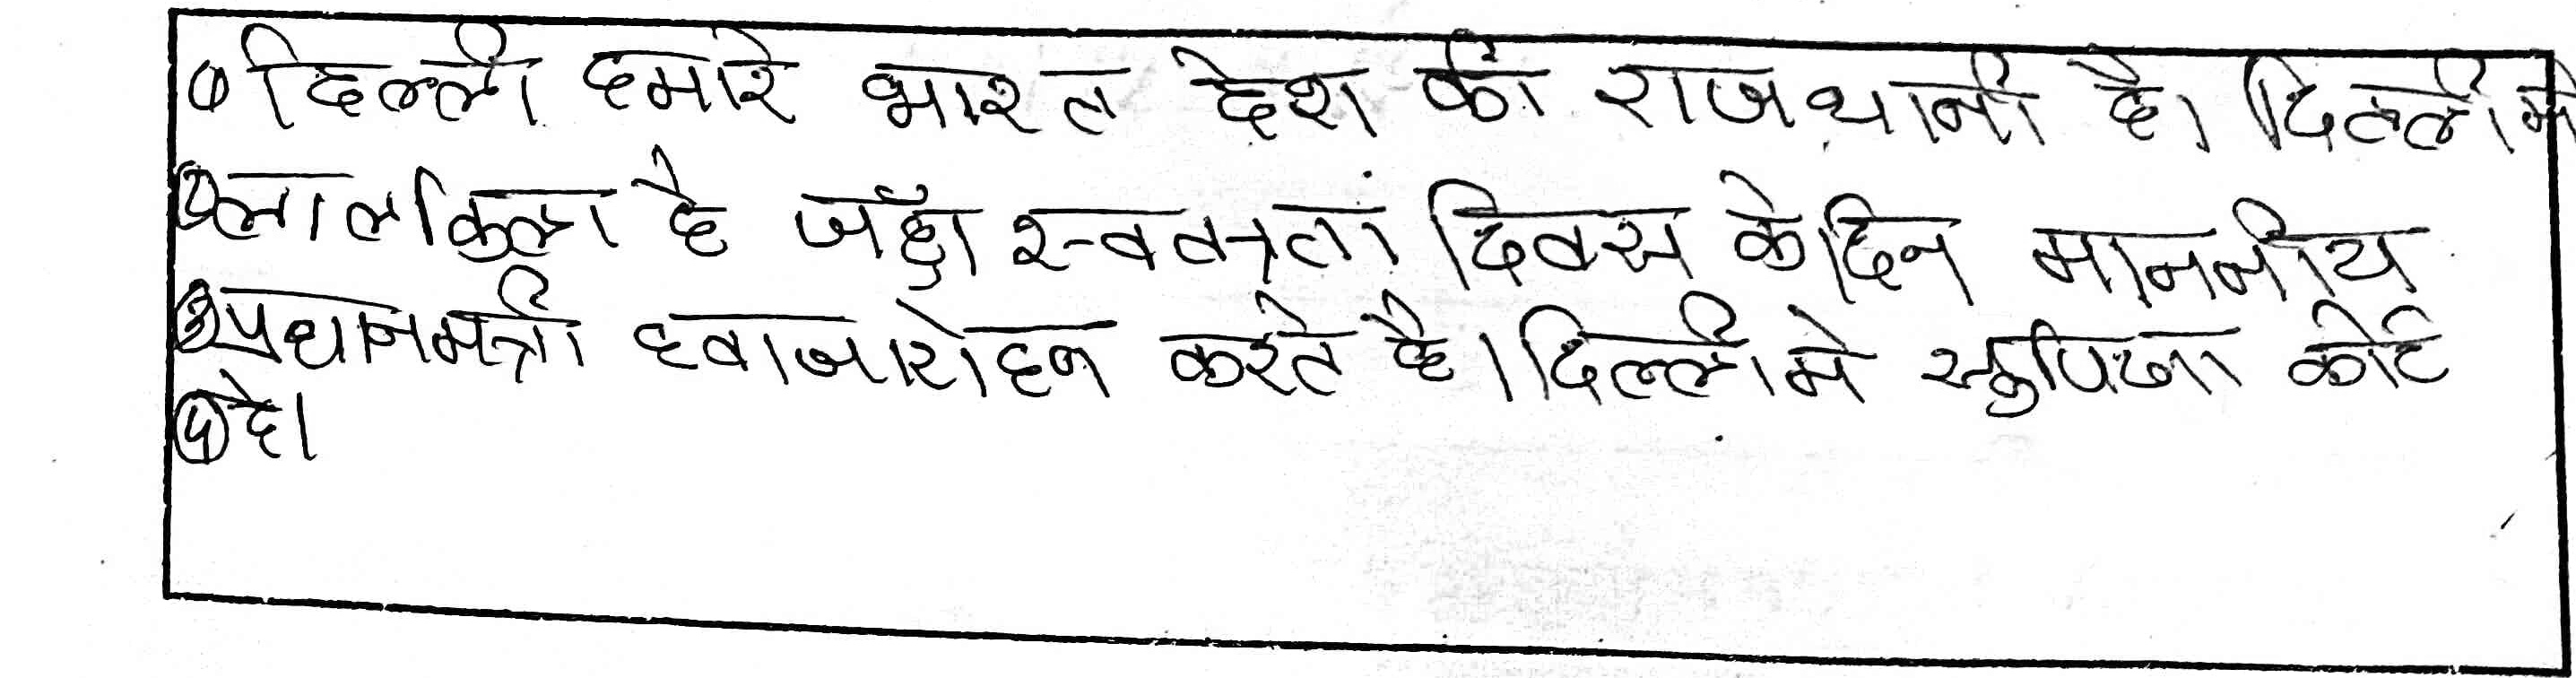 ① दिल्ली हमारे भारत देश की राजधानी है। दिल्ली मे
② लालकिला है जहाँ स्वतन्त्रता दिवस के दिन माननीय
③ प्रधानमंत्री ध्वाजारोहन करते है। दिल्ली मे कोर्ट
④ है।